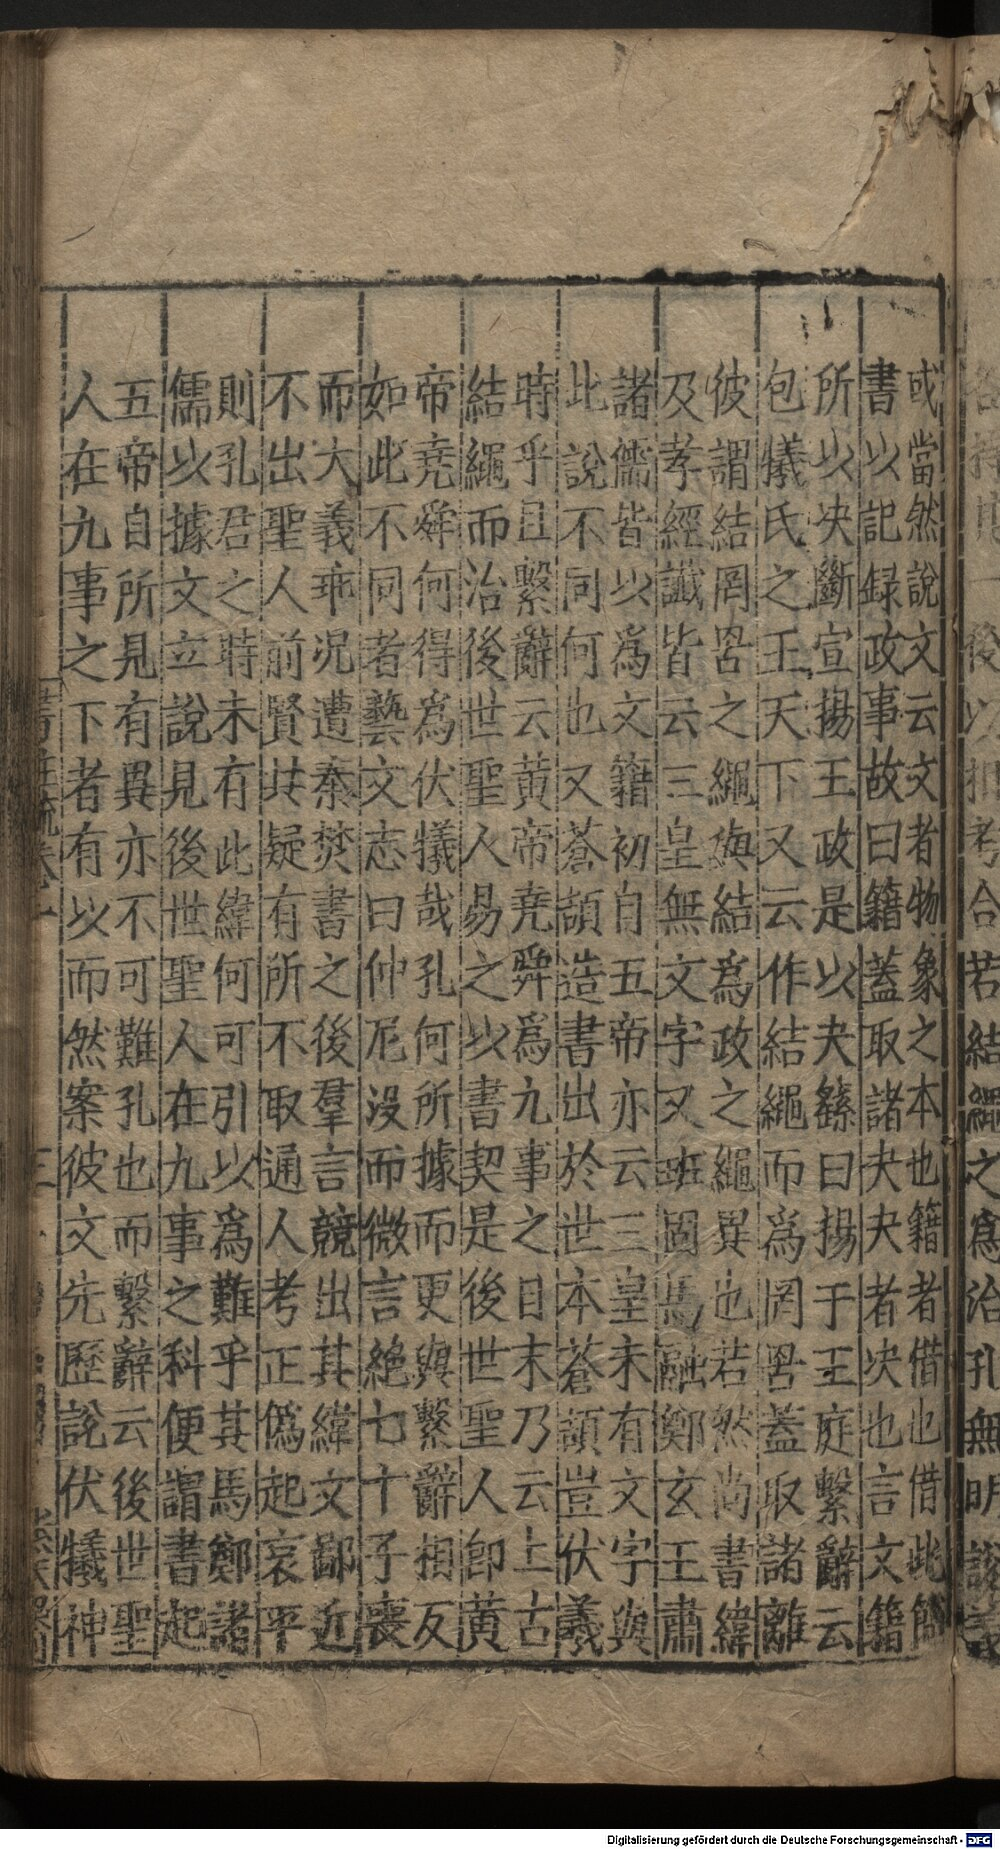 或當然說文云文者物象之本也籍者借也借此簡
書以記録政事故曰籍蓋取諸夬夬者决也言文籍
所以决斷宣揚王政是以夬繇曰揚于王庭繫辭云
包犧氏之王天下又云作結繩而爲罔罟蓋取諸離
彼謂結罔罟之繩與結爲政之繩異也若然尚書緯
及孝經讖皆云三皇無文字又班固馬融鄭玄王肅
諸儒皆以爲文籍初自五帝亦云三皇未有文字與
此說不同何也又蒼頡造書出於世本蒼頡豈伏羲
時乎且繫辭云黄帝堯舜爲九事之目末乃云上古
結繩而治後世聖人易之以書契是後世聖人即黄
帝堯舜何得爲伏犧哉孔何所據而更與繫辭相反
如此不同者藝文志曰仲尼没而微言絶七十子喪
而大義乖况遭秦焚書之後羣言競出其緯文鄙近
不出聖人前賢共疑有所不取通人考正僞起哀平
則孔君之時未有此緯何可引以爲難乎其馬鄭諸
儒以據文立說見後世聖人在九事之科便謂書起
五帝自所見有異亦不可難孔也而繫辭云後世聖
人在九事之下者有以而然案彼文先歷說伏犧神
考合若結繩之爲治孔無明說
Digitalisierung gefördert durch die Deutsche Forschungsgemeinschaft - DFG